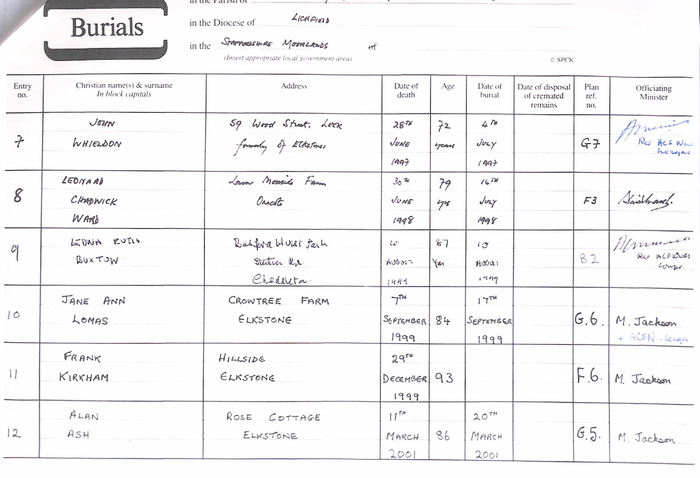 Burials
in the Diocese of LICHFIELD
in the STAFFORDSHIRE MOORLANDS of
(Insert appropriate local government area)
© SPCK
Entry no. Christian name(s) & surname In block capitals Address Date of death Age Date of burial Date of disposal of cremated remains Plan ref. no. Officiating Minister
7 JOHN WHIELDON 59 Wood Street, Leek formerly of Elkstones 28TH JUNE 1997 72 years 4TH JULY 1997 G7
8 LEONARD CHADWICK WARD Lower Farm Onecote 30TH JUNE 1998 79 yrs 14TH JULY 1998 F3
9 EDNA RUTH BUXTON Park Station Rd Cheddleton AUGUST 1999 87 10 AUGUST 1999 B2
10 JANE ANN LOMAS CROWTREE FARM ELKSTONE 7TH SEPTEMBER 1999 84 17TH SEPTEMBER 1999 G.6. M. Jackson
11 FRANK KIRKHAM HILLSIDE ELKSTONE 29TH DECEMBER 1999 93 F.6. M. Jackson
12 ALAN ASH ROSE COTTAGE ELKSTONE 11TH MARCH 2001 86 20TH MARCH 2001 G.5. M. Jackson